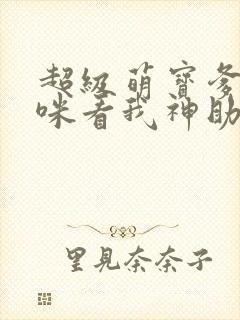 超级萌宝爹
咪看我神助
里見奈奈子